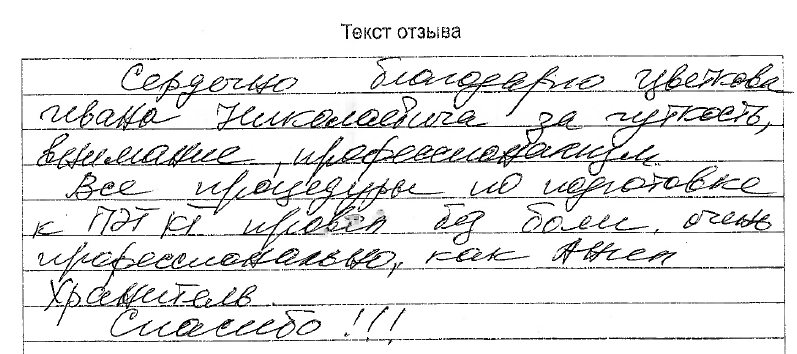 Текст отзыва
Сердечно благодарю Цветкова
Ивана Николаевича за чуткость,
внимание, профессионализм
Все процедуры по подготовке
к ПЭТ КТ провёл без боли, очень
профессионально, как Ангел
Хранитель.
Спасибо!!!